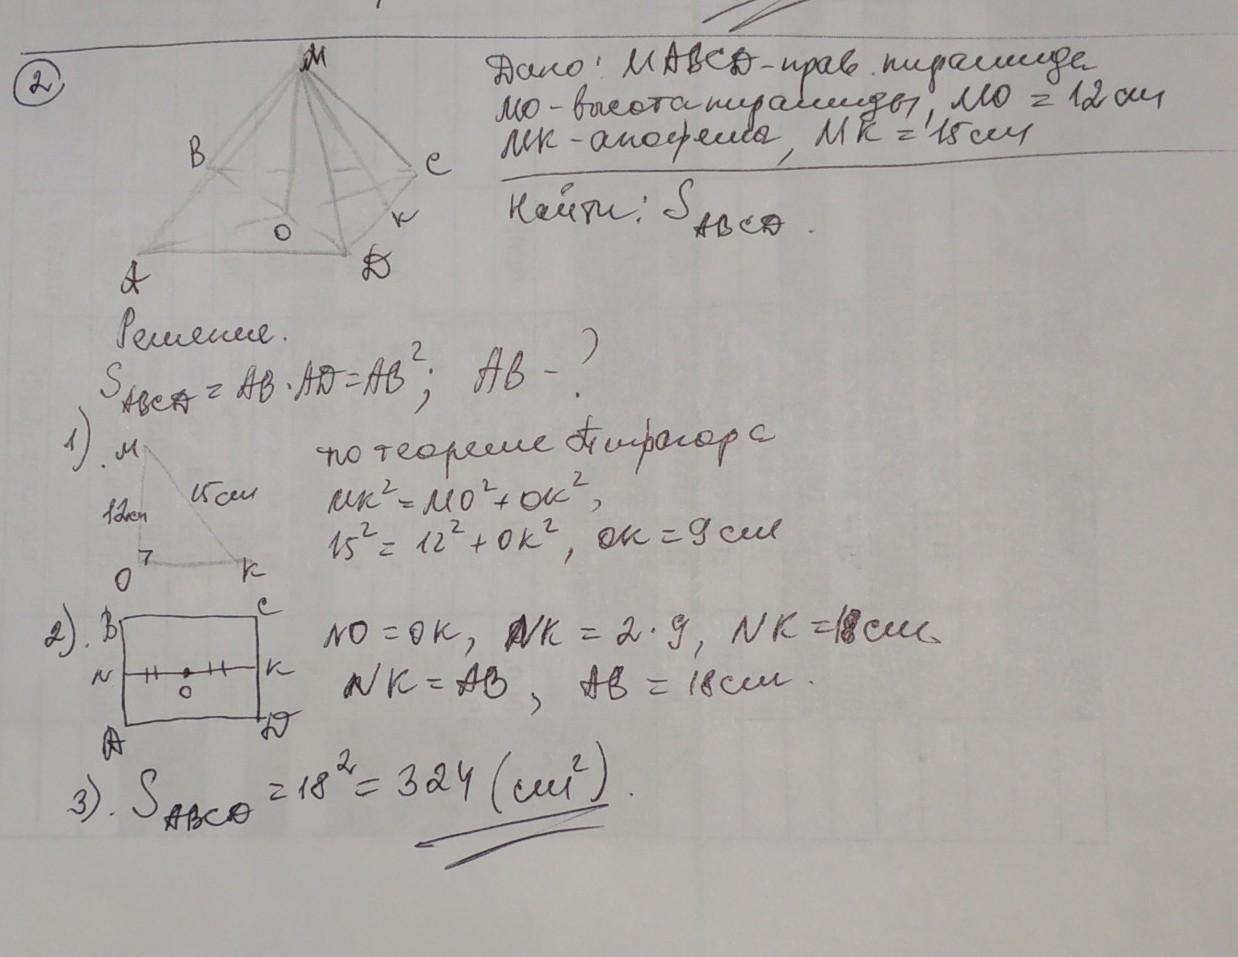 2
M
B
C
K
O
A
D
Дано: MABCD - прав. пирамида
MO - высота пирамиды, MO = 12 см
MK - апофема, MK = 15 см
Найти: S_ABCD.
Решение.
S_ABCD = AB · AD = AB²; AB - ?
1). M
12 см
15 см
O
K
по теореме Пифагора
MK² = MO² + OK²,
15² = 12² + OK², OK = 9 см
2). B
C
N
O
K
A
D
NO = OK, NK = 2 · 9, NK = 18 см.
NK = AB, AB = 18 см.
3). S_ABCD = 18² = 324 (см²).